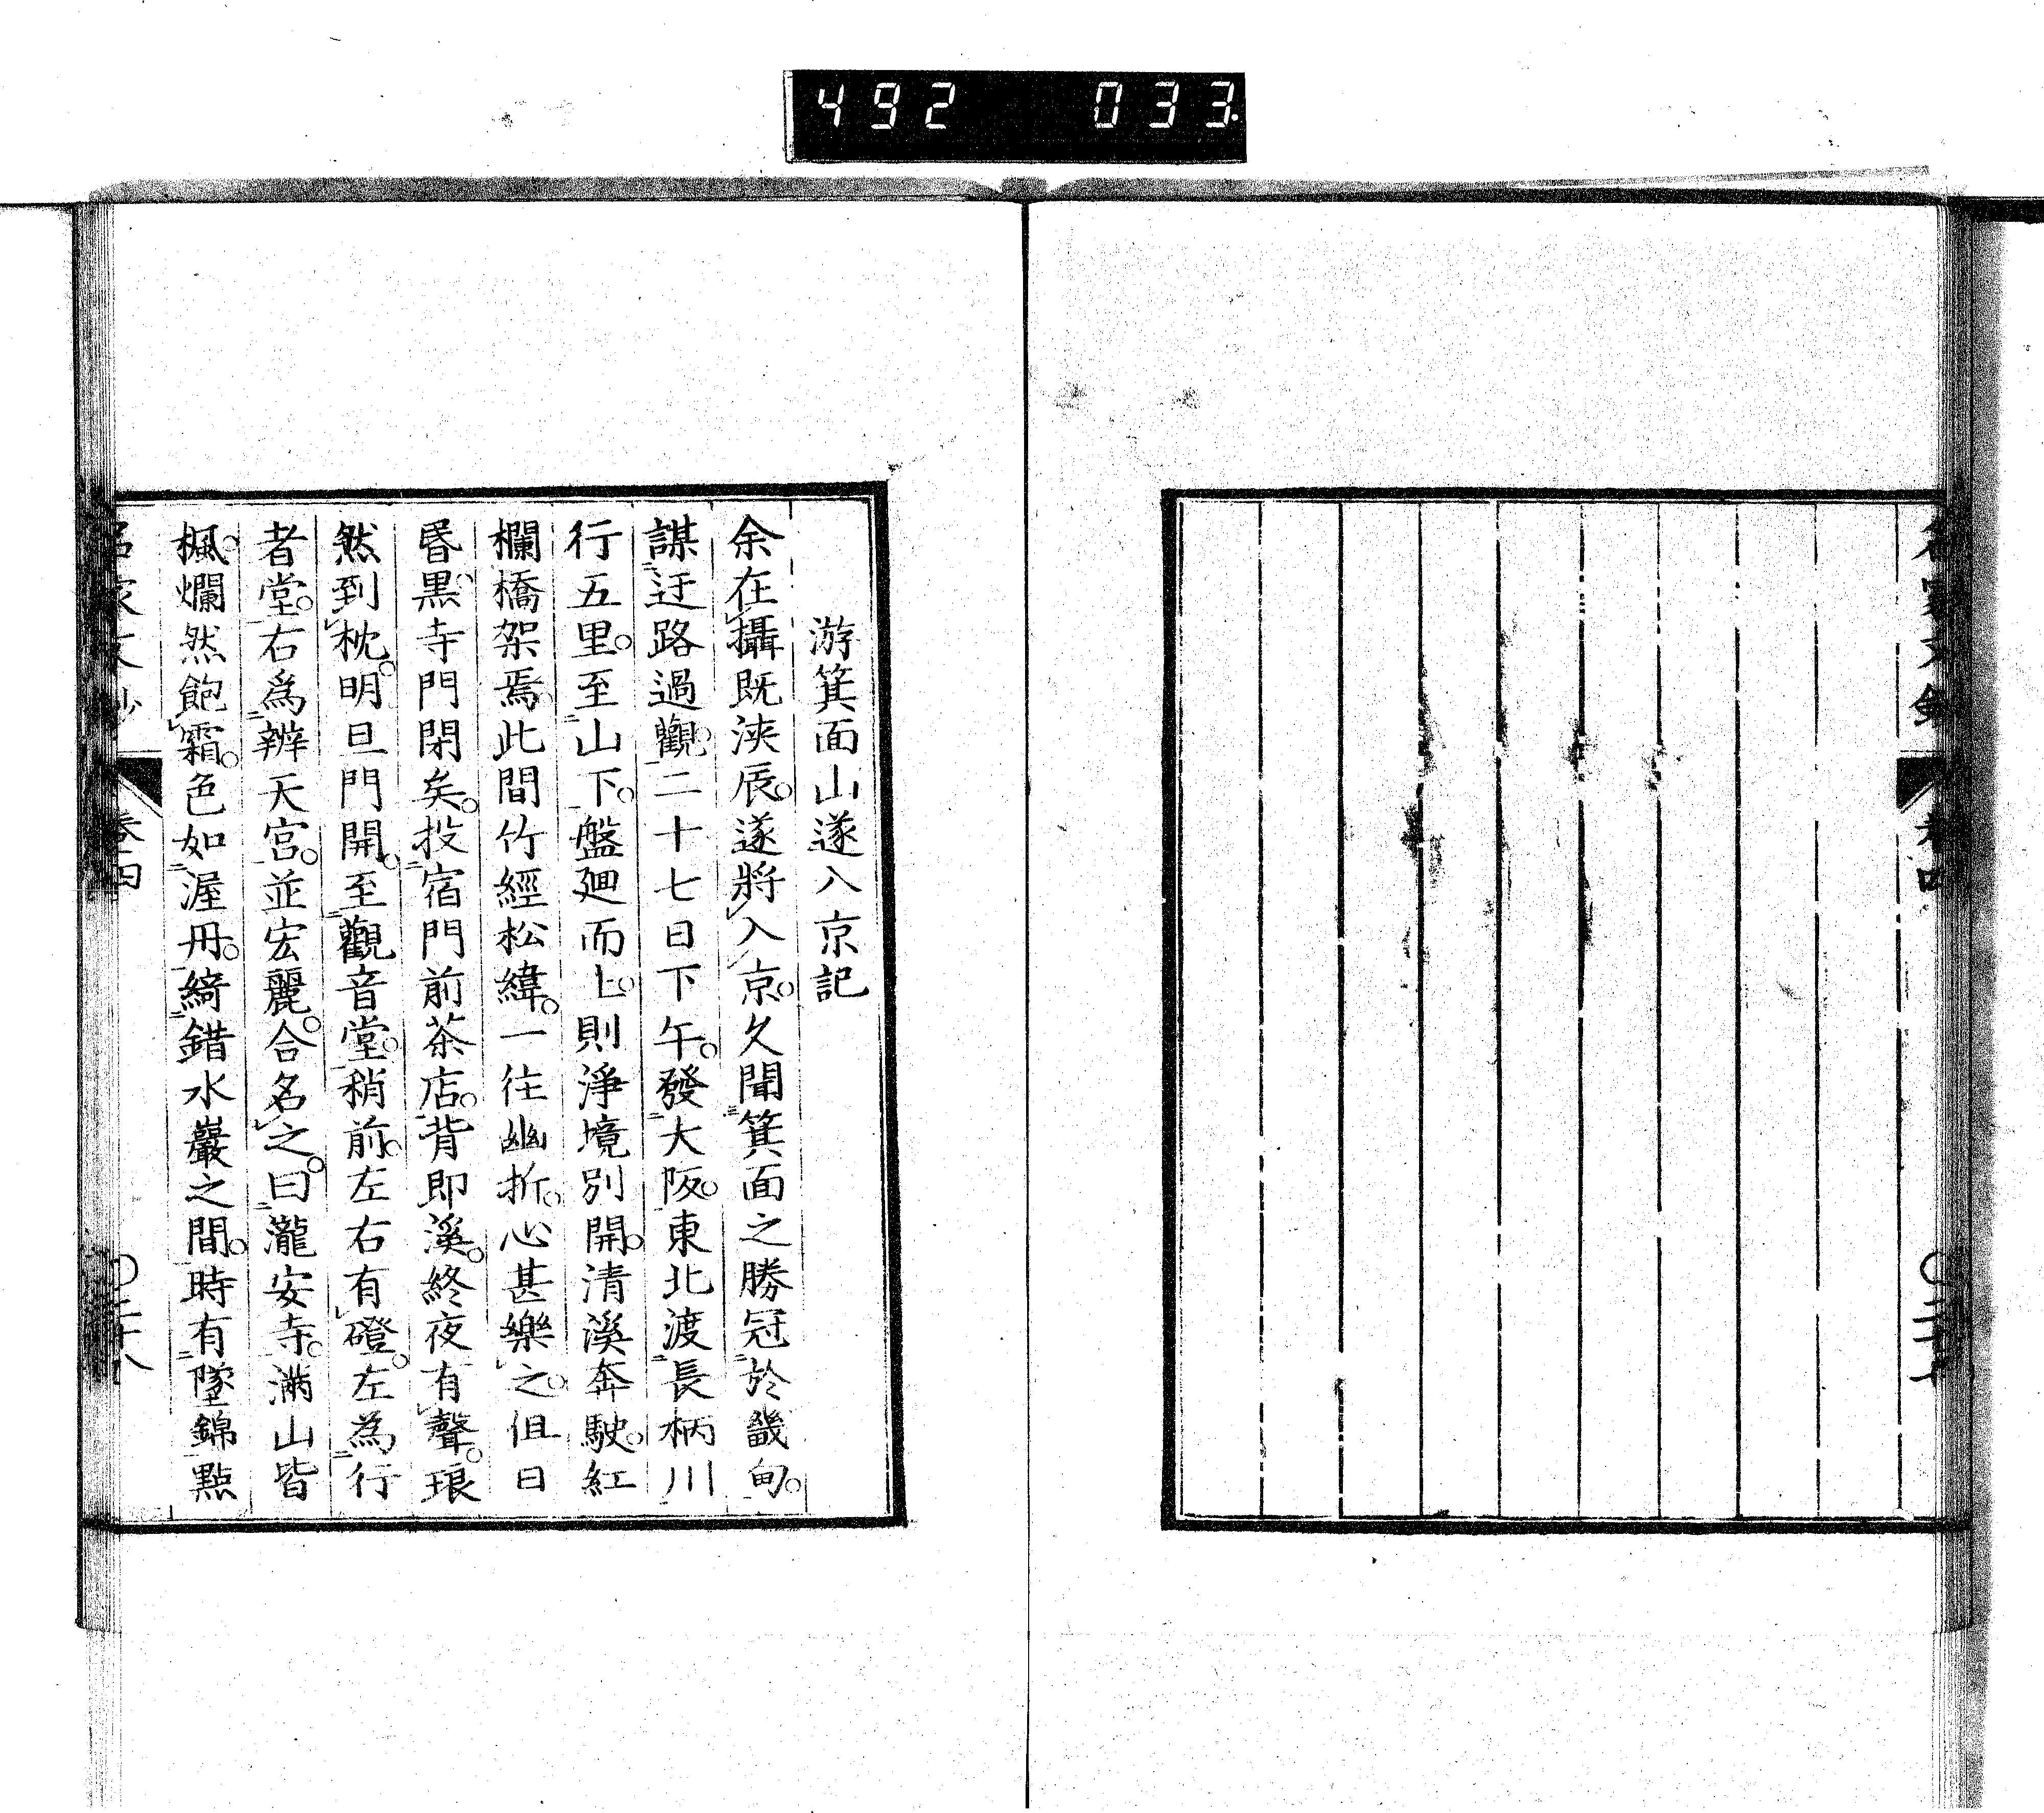 492 033.
名家文鈔 卷四 〇二十七
游箕面山遂入京記
余在攝既浹辰。遂將入京。久聞箕面之勝冠於畿甸。
謀迂路過觀。二十七日下午。發大阪。東北渡長柄川
行五里。至山下。盤廻而上。則淨境別開。清溪奔駛。紅
欄橋架焉。此間竹經松緯。一往幽折。心甚樂之。但日
昏黒。寺門閉矣。投宿門前茶店。背即溪。終夜有聲。琅
然到枕。明旦門開。至觀音堂。稍前。左右有磴。左為行
者堂。右爲辨天宮。並宏麗。合名之。曰瀧安寺。滿山皆
楓。爛然飽霜。色如渥丹。綺錯水巖之間。時有墜錦點
名家文鈔 卷四 〇二十八